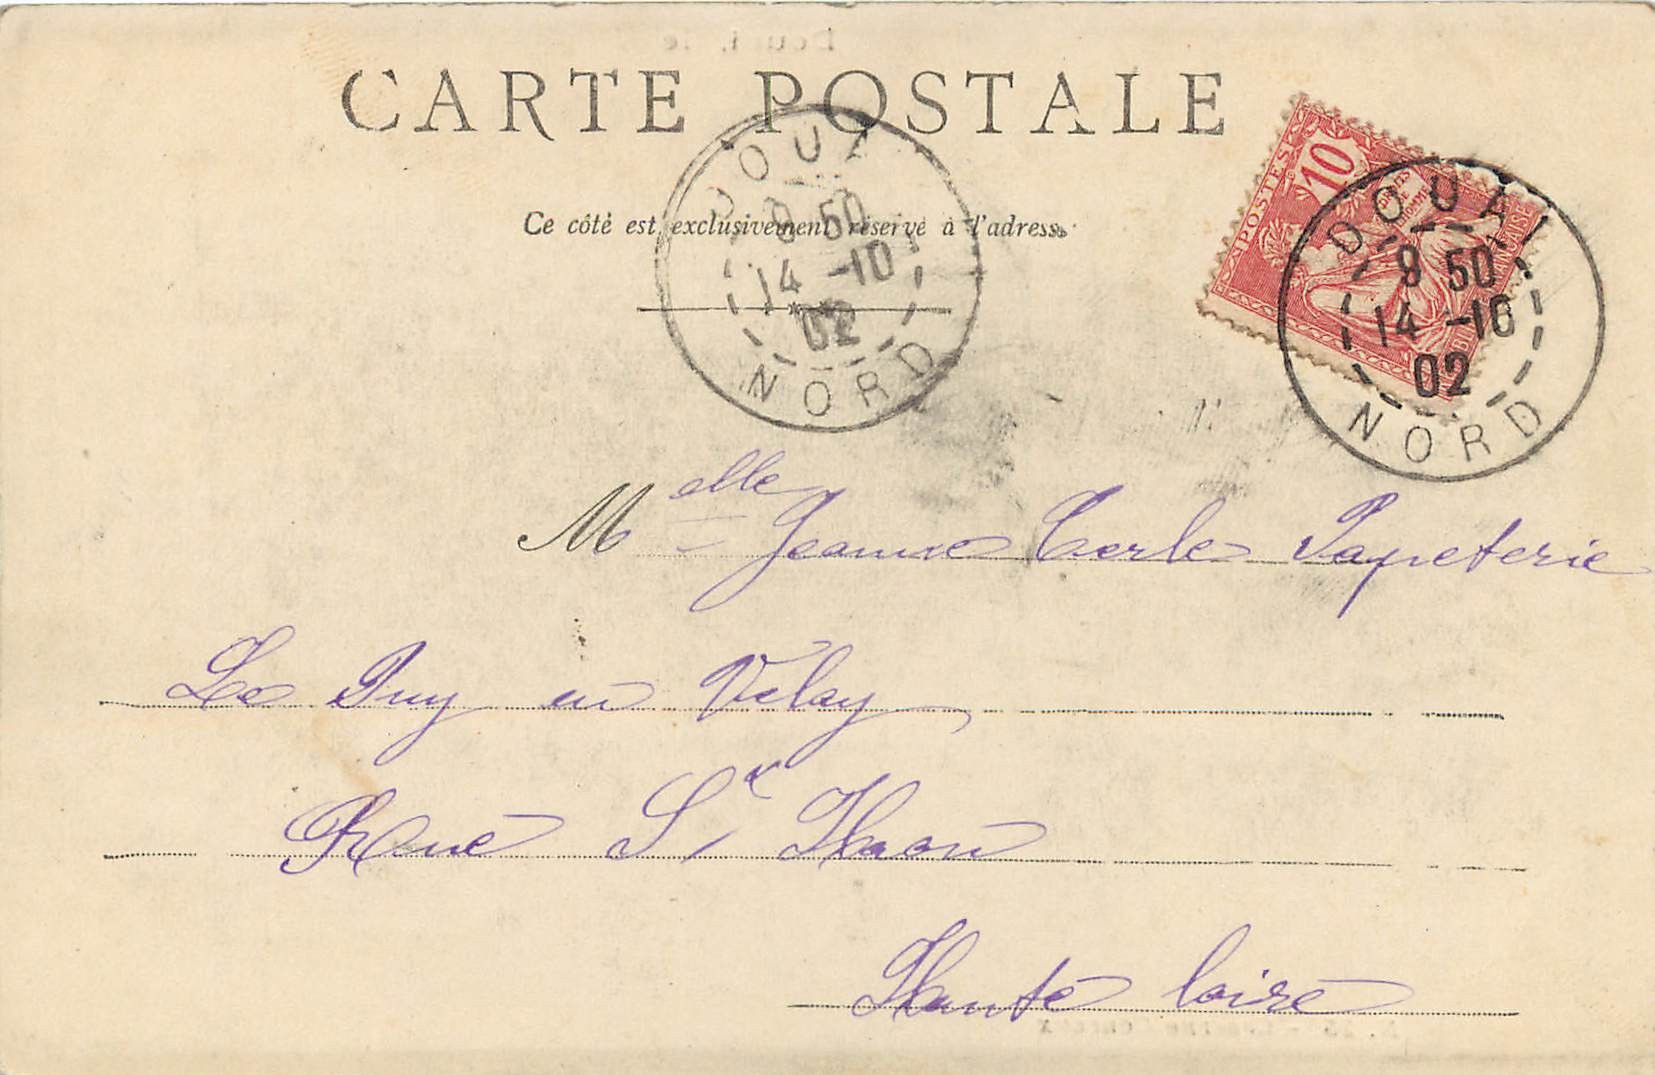 CARTE POSTALE
Ce côté est exclusivement réservé à l'adresse
DOUAI
9 50
14 -10
02
NORD
POSTES
10
DOUAI
9 50
14 -10
02
NORD
Melle Jeanne Terle Papeterie
Le Puy en Velay
Rue St Haon
Haute loire